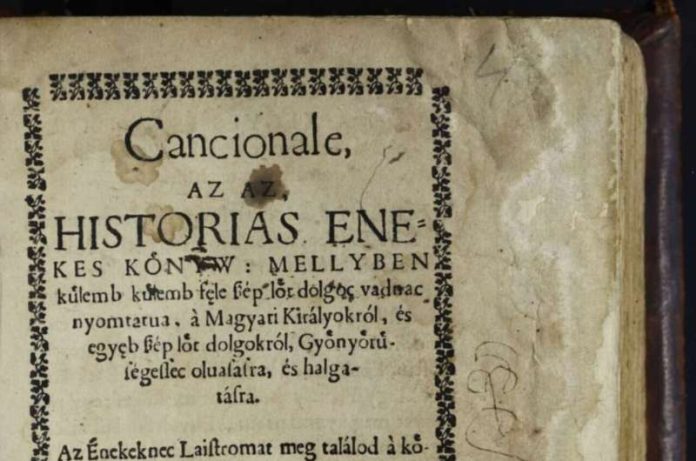 Cancionale,
AZ AZ,
HISTORIAS ENE-
KES KÖNYW: MELLYBEN
külemb külemb fele ßép löt dolgoc vadnac
nyomtatua, à Magyari Királyokról, és
egyeb ßép löt dolgokról, Gyönyörü-
ſégeſſec oluaſáſra, és halga-
táſra.
Az Énekeknec Laiſtromat meg találod à kö-